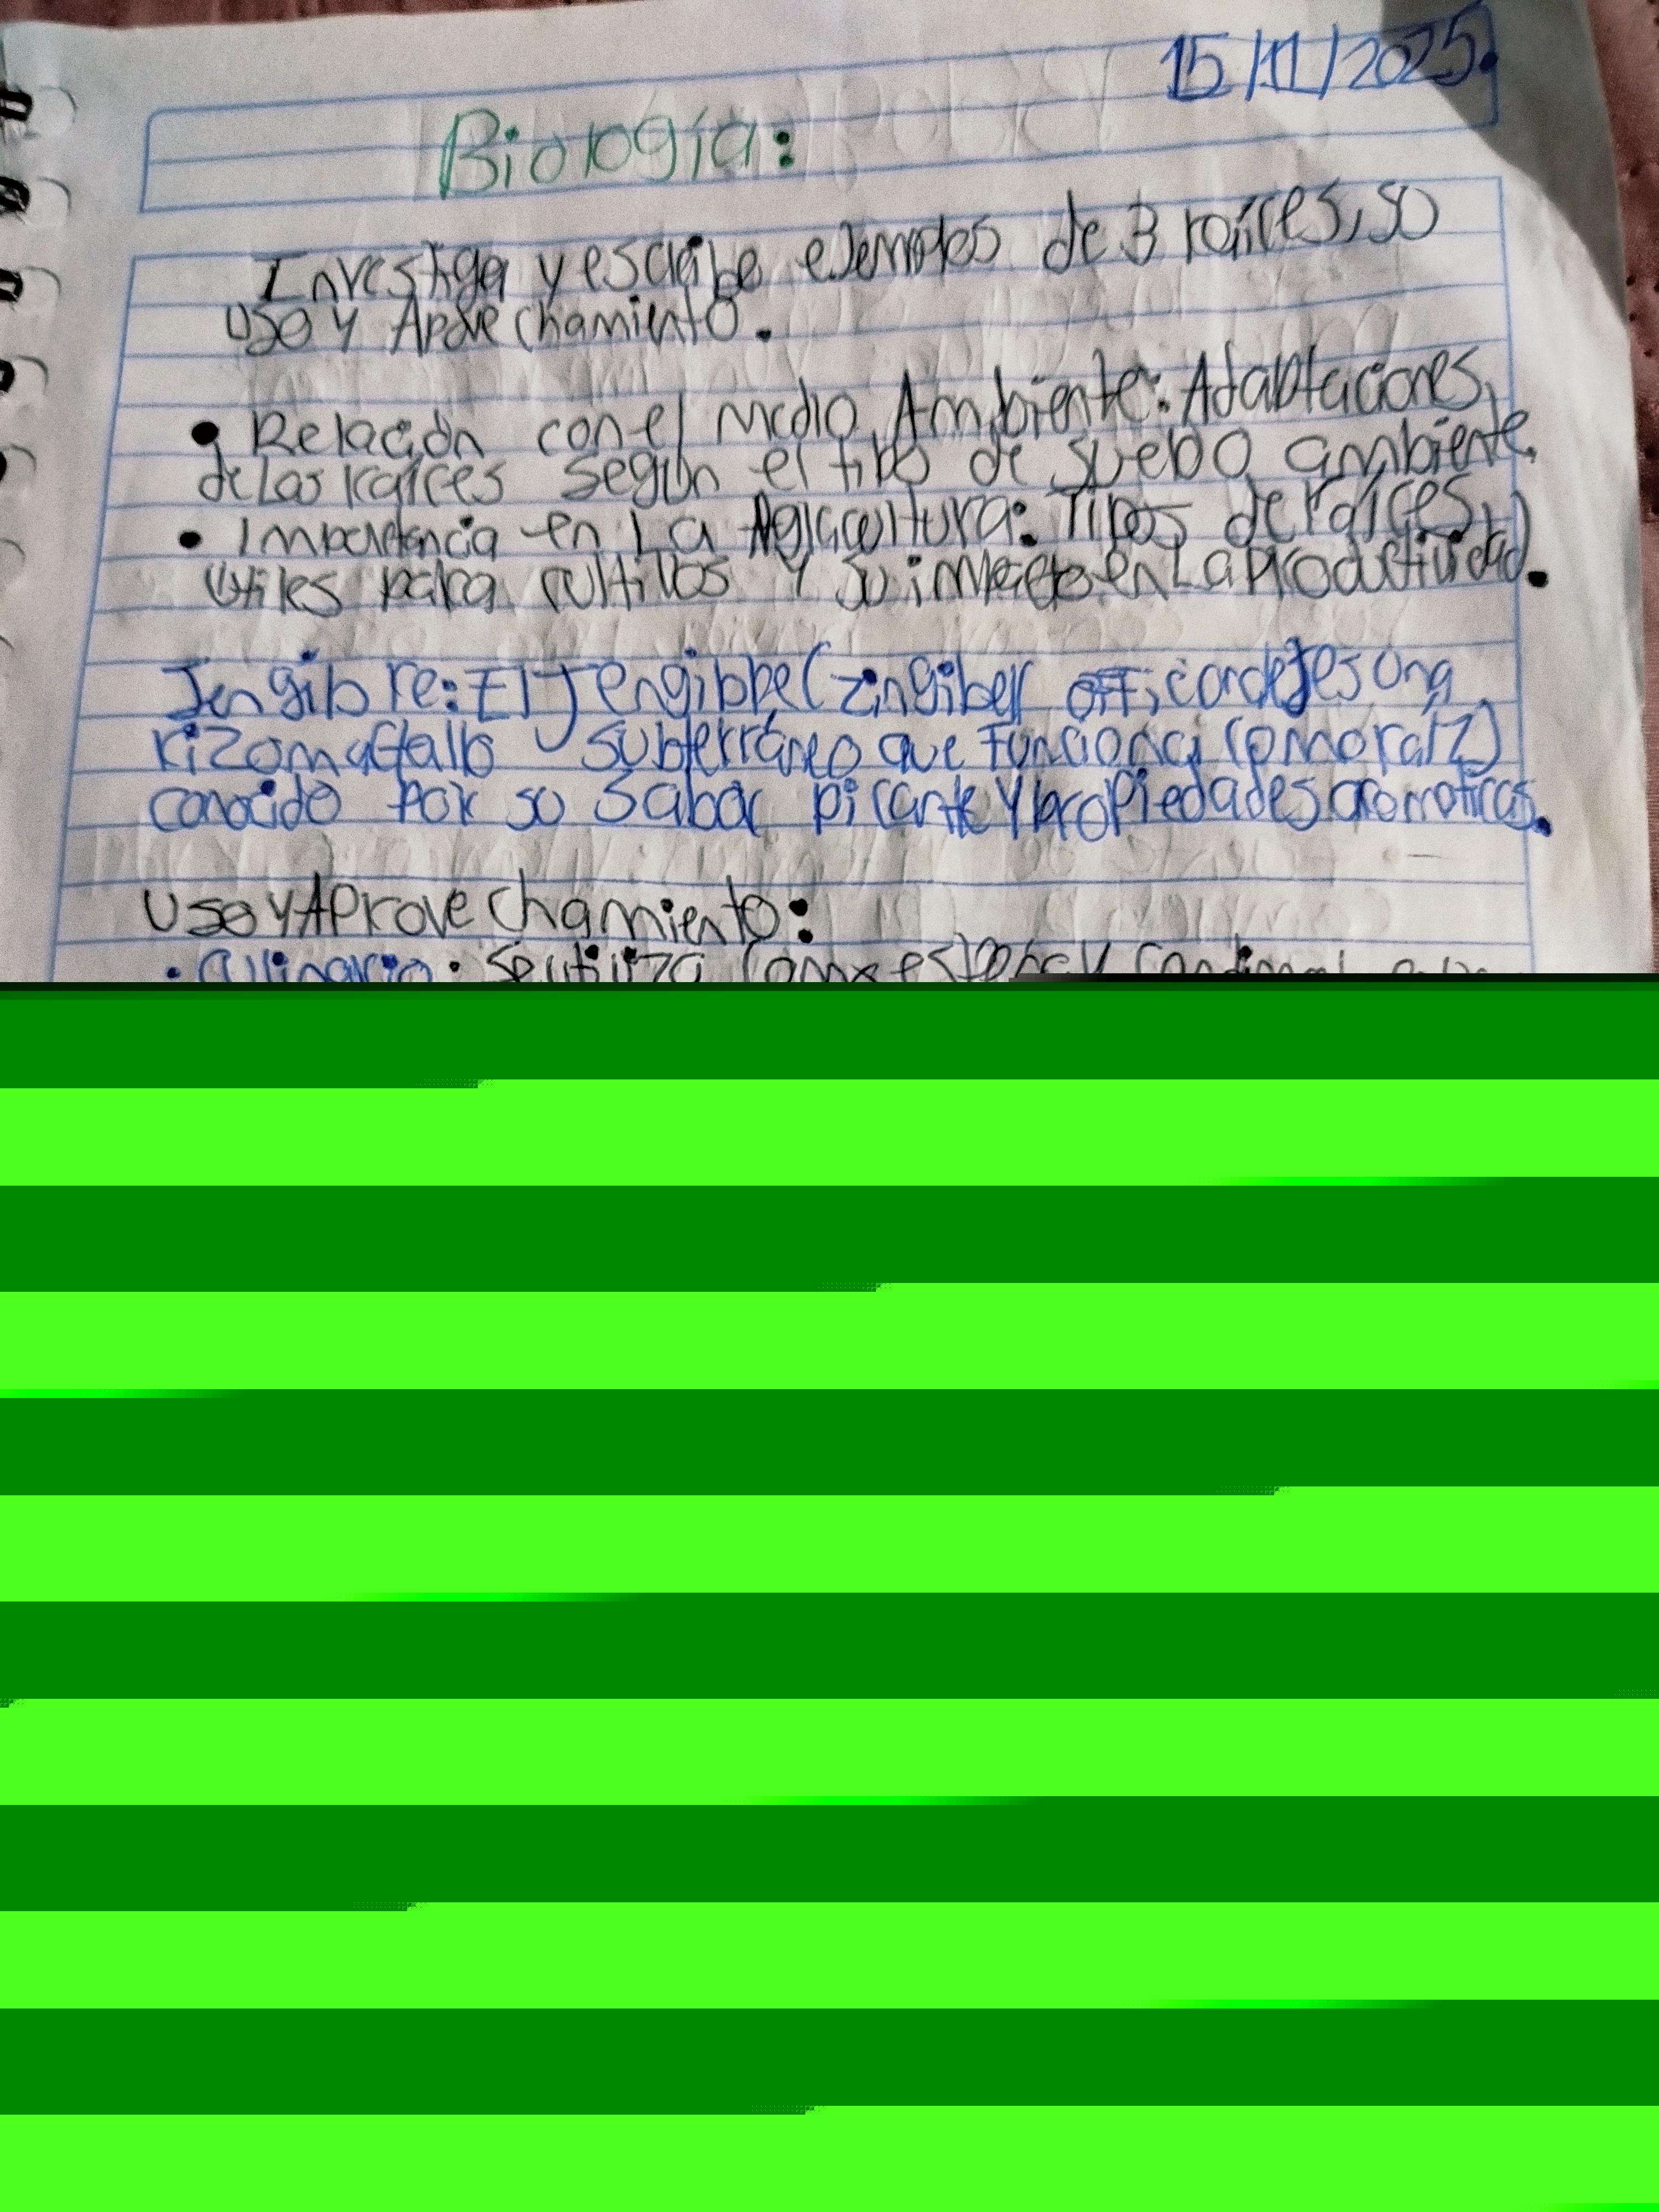 15/11/2025.
Biología:
Investiga y escribe ejemplos de 3 raíces, so
uso y Aprovechamiento.
• Relación con el medio Ambiente: Adaptaciones
de las raíces según el tipo de suelo o ambiente.
• Importancia en La Agricultura: Tipos de raíces
útiles para cultivos y su impacto en La productividad.
Jengibre: El Jengibre (zingiber es una
rizoma (tallo subterráneo que funciona como raíz)
conocido por su sabor picante y propiedades aromáticas.
Uso y Aprovechamiento:
• Culinario: Se utiliza como especia y condimento